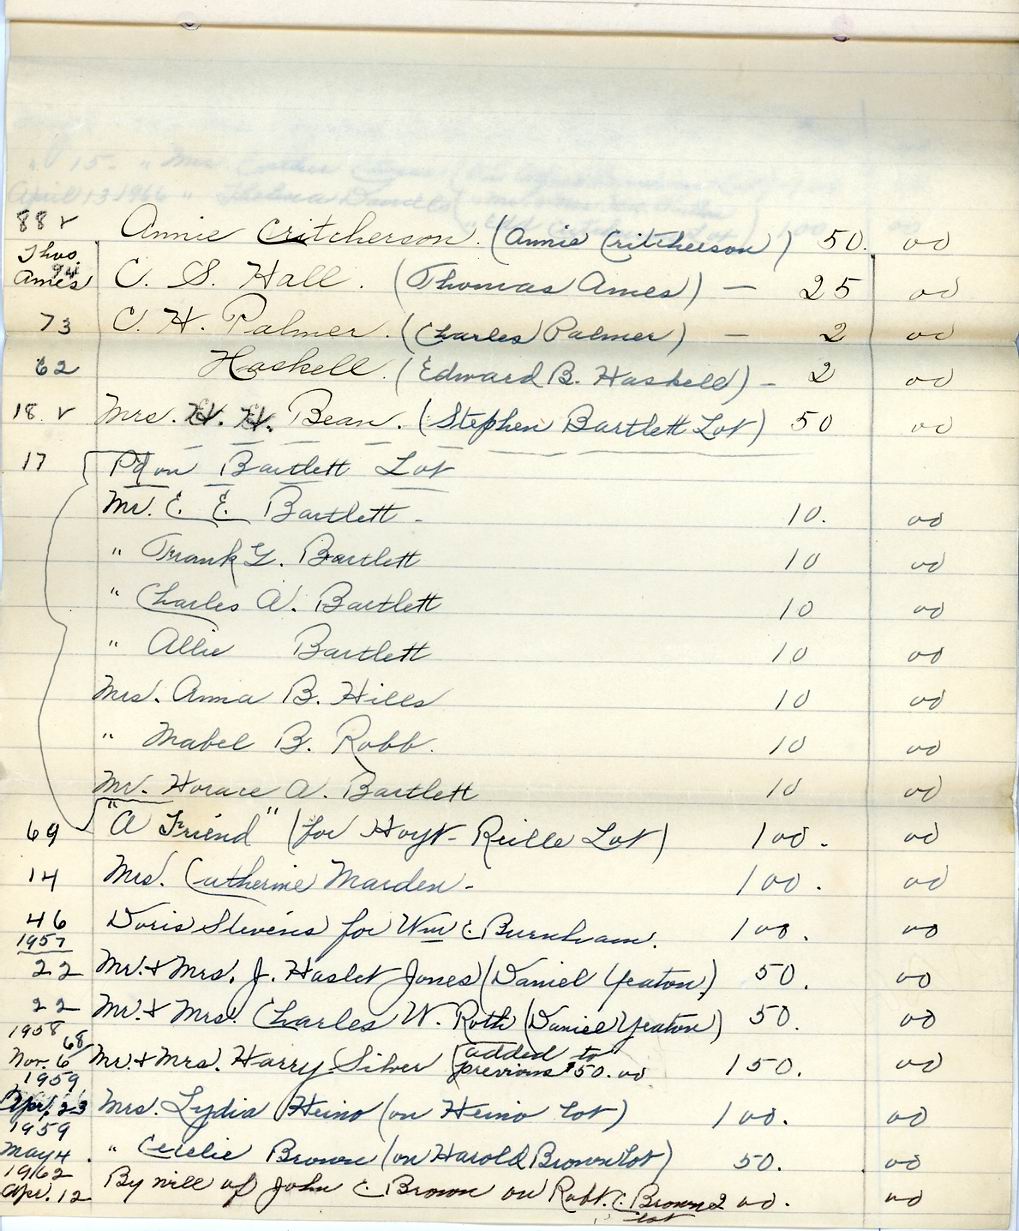 " 15 - " Mrs.
April 13 1966 " Thelma Daniels 100 00
88 v Annie Critcherson. (Annie Critcherson) 50. 00
Thos. Ames 94 C. S. Hall. (Thomas Ames) — 25 00
73 C. H. Palmer. (Charles Palmer) — 2 00
62 Haskell. (Edward B. Haskell) - 2 00
18 v Mrs. H. H. Bean. (Stephen Bartlett Lot) 50 00
17 Pd on Bartlett Lot
Mr. E. E. Bartlett - 10. 00
" Frank G. Bartlett 10 00
" Charles A. Bartlett 10 00
" Allie Bartlett 10 00
Mrs. Anna B. Hills 10 00
" Mabel B. Robb. 10 00
Mr. Horace A. Bartlett 10 00
69 "A Friend" (for Hoyt-Reille Lot) 100. 00
14 Mrs. Catherine Marden - 100. 00
46 Doris Stevens for Wm C Burnham. 100. 00
1957
22 Mr. + Mrs. J. Haslet Jones (Daniel Yeaton) 50. 00
22 Mr. + Mrs. Charles W. Roth (Daniel Yeaton) 50. 00
1958 68
Nov. 6 Mr. + Mrs. Harry Silver (added to previous $50.00 150. 00
1959
Apr. 23 Mrs. Lydia Heino (on Heino lot) 100. 00
1959
May 4 " Cecelie Brown (on Harold Brown Lot) 50. 00
1962
Apr. 12 By will of John C. Brown on Robt. C. Brown lot 200. 00